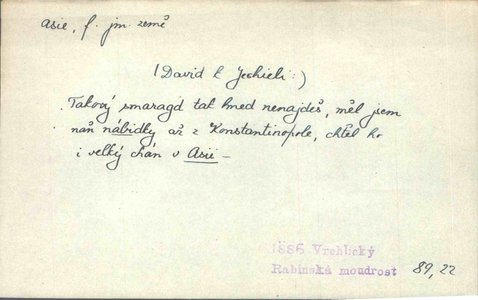 Asie, f. jm. země
(David k Jechieli:)
Takový smaragd tak hned nenajdeš, měl jsem
naň nabídky až z Konstantinopole, chtěl ho
i velký chán v Asii –
1886 Vrchlický
Rabínská moudrost 89,22